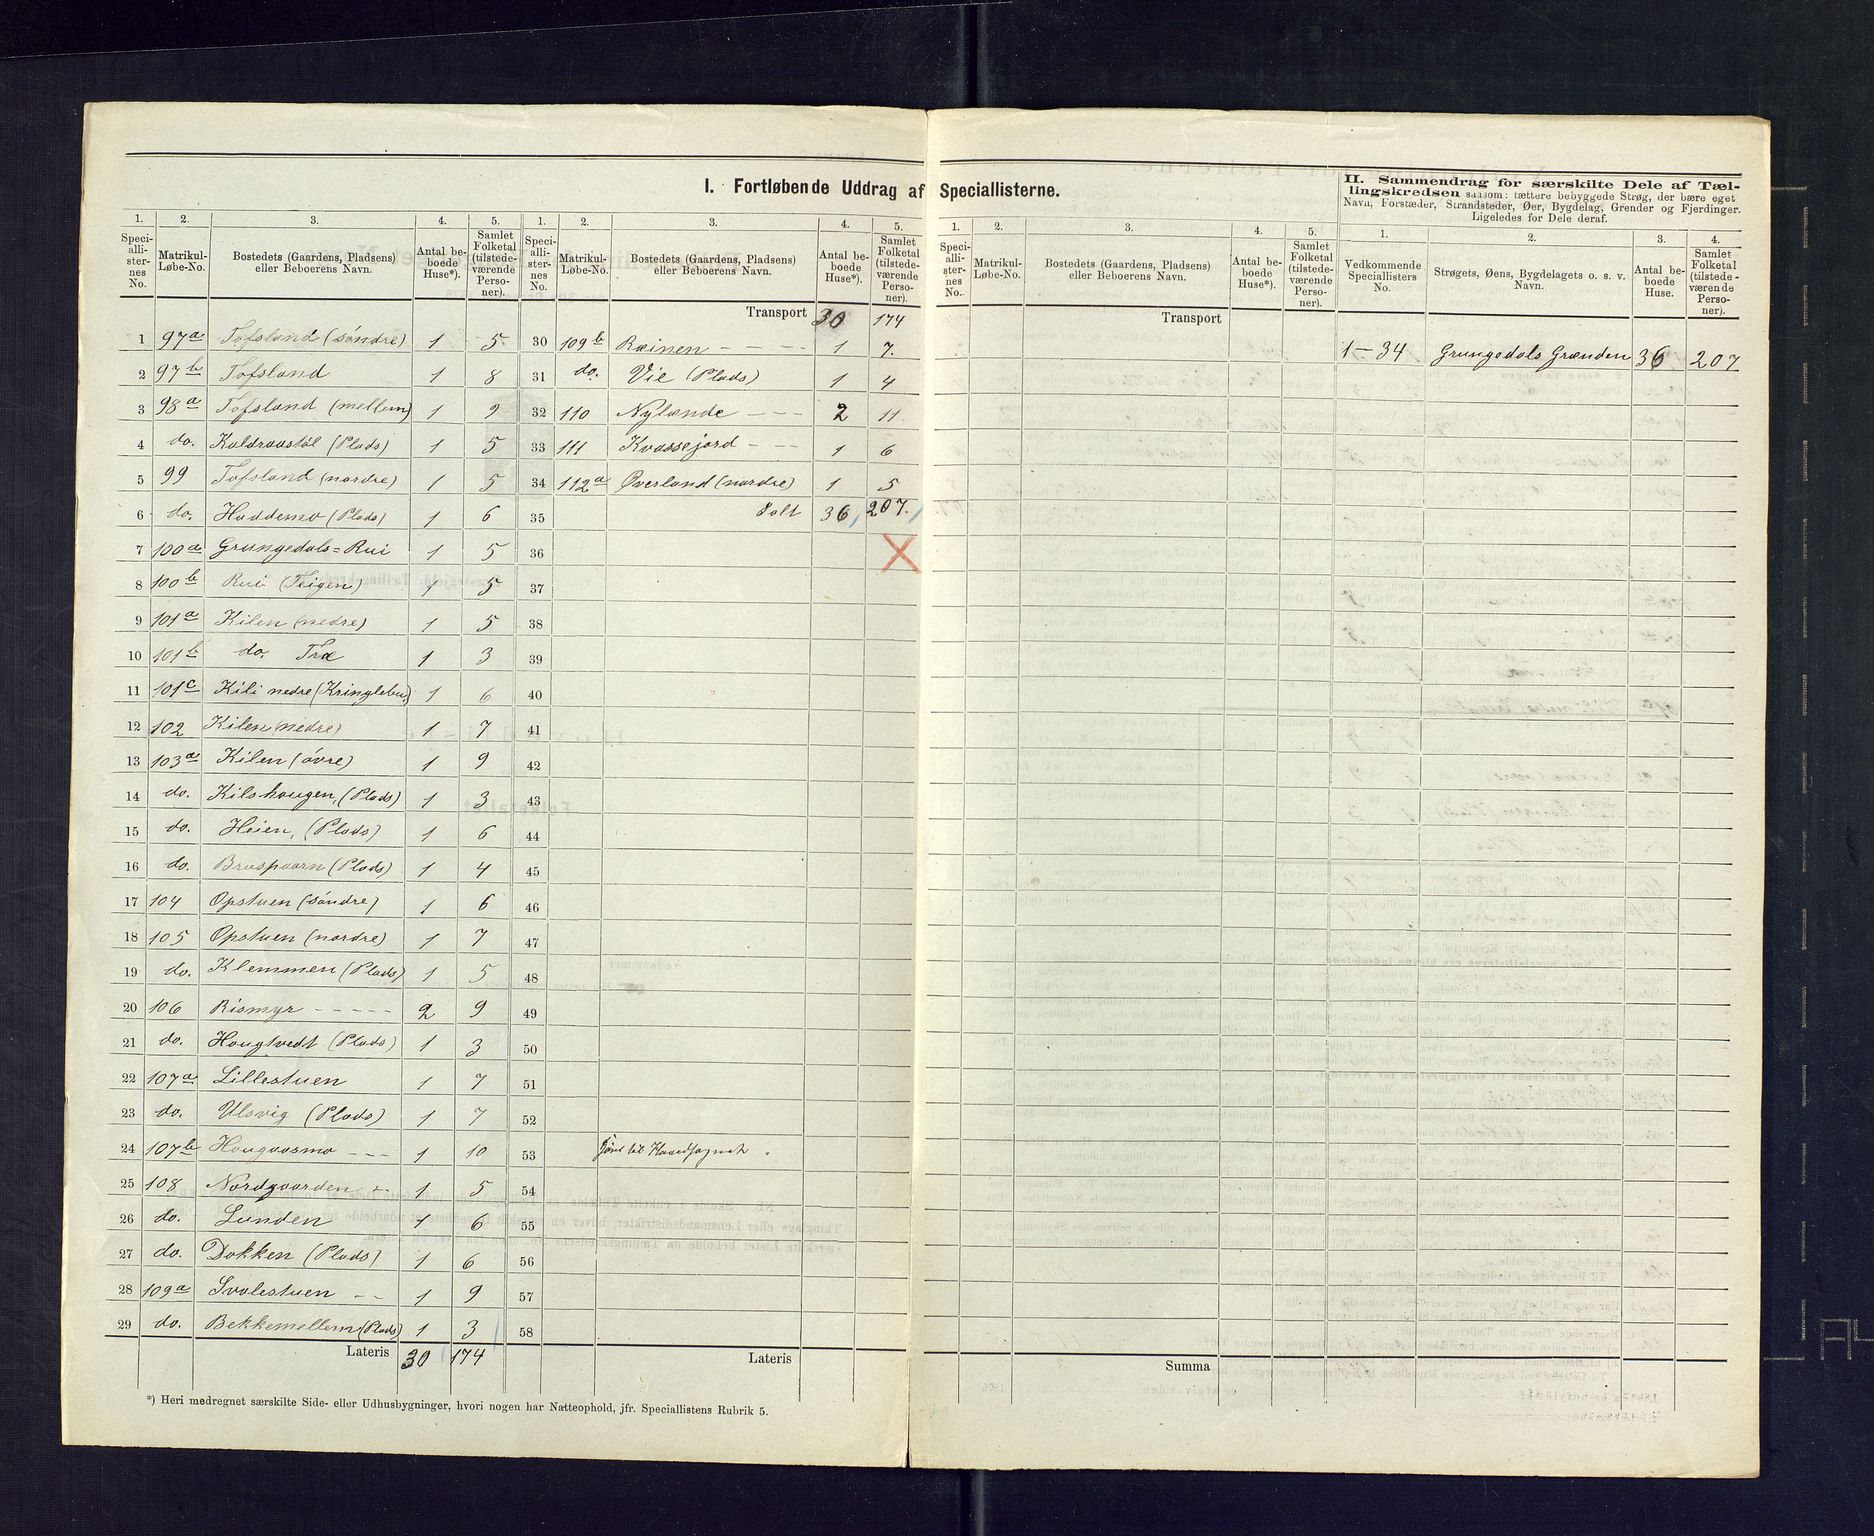 I. Fortløbende Uddrag af Speciallisterne.
II. Sammendrag for særskilte Dele af Tællingskredsen saasom: tættere bebyggede Strøg, der bære eget
Navn, Forstæder, Strandsteder, Øer, Bygdelag, Grender og Fjerdinger.
Ligeledes for Dele deraf.
1. 2. 3. 4. 5. 1. 2. 3. 4. 5. 1. 2. 3. 4. 5. 1. 2. 3. 4.
Speciallisternes No. Matrikul-Løbe-No. Bostedets (Gaardens, Pladsens) eller Beboerens Navn. Antal beboede Huse*). Samlet Folketal (tilstedeværende Personer).
Speciallisternes No. Matrikul-Løbe-No. Bostedets (Gaardens, Pladsens) eller Beboerens Navn. Antal beboede Huse*). Samlet Folketal (tilstedeværende Personer).
Speciallisternes No. Matrikul-Løbe-No. Bostedets (Gaardens, Pladsens) eller Beboerens Navn. Antal beboede Huse*). Samlet Folketal (tilstedeværende Personer).
Vedkommende Speciallisters No. Strøgets, Øens, Bygdelagets o. s. v. Navn. Antal beboede Huse. Samlet Folketal (tilstedeværende Personer).
1 97a Tofsland (söndre) 1 5
2 97b Tofsland 1 8
3 98a Tofsland (mellem) 1 9
4 do. Kaldraastöl (Plads) 1 5
5 99 Tofsland (nordre) 1 5
6 do. Haddemo (Plads) 1 6
7 100a Grungedals=Rui 1 5
8 100b Rui (Teigen) 1 5
9 101a Kilen (nedre) 1 5
10 101b do. Træ 1 3
11 101c Kili nedre (Kringlebu) 1 6
12 102 Kilen (nedre) 1 7
13 103a Kilen (övre) 1 9
14 do. Kilshaugen, (Plads) 1 3
15 do. Heien, (Plads) 1 6
16 do. Bruspaarn (Plads) 1 4
17 104 Opstuen (söndre) 1 6
18 105 Opstuen (nordre) 1 7
19 do. Klemmen (Plads) 1 5
20 106 Rismyr - - - - - 2 9
21 do. Hougtvedt (Plads) 1 3
22 107a Lillestuen 1 7
23 do. Ulsvig (Plads) 1 7
24 107b Hougaasmo - - - 1 10
25 108 Nordgaarden - - 1 5
26 do. Lunden 1 6
27 do. Dokken (Plads) 1 6
28 109a Svalestuen - - 1 9
29 do. Bekkemellem (Plads) 1 3
Lateris 30 174
Transport 30 174
30 109b Reinen - - - 1 7.
31 do. Vie (Plads) 1 4
32 110 Nylænde - - - 2 11
33 111 Kvassejord - - - 1 6
34 112a Överland (nordre) 1 5
35 Ialt 36 207.
36
37
38
39
40
41
42
43
44
45
46
47
48
49
50
51
52
53
54
55
56
57
58
Lateris
Transport
Summa
1-34 Grungedals Grænden 36 207
*) Heri medregnet særskilte Side- eller Udhusbygninger, hvori nogen har Natteophold, jfr. Speciallistens Rubrik 5.